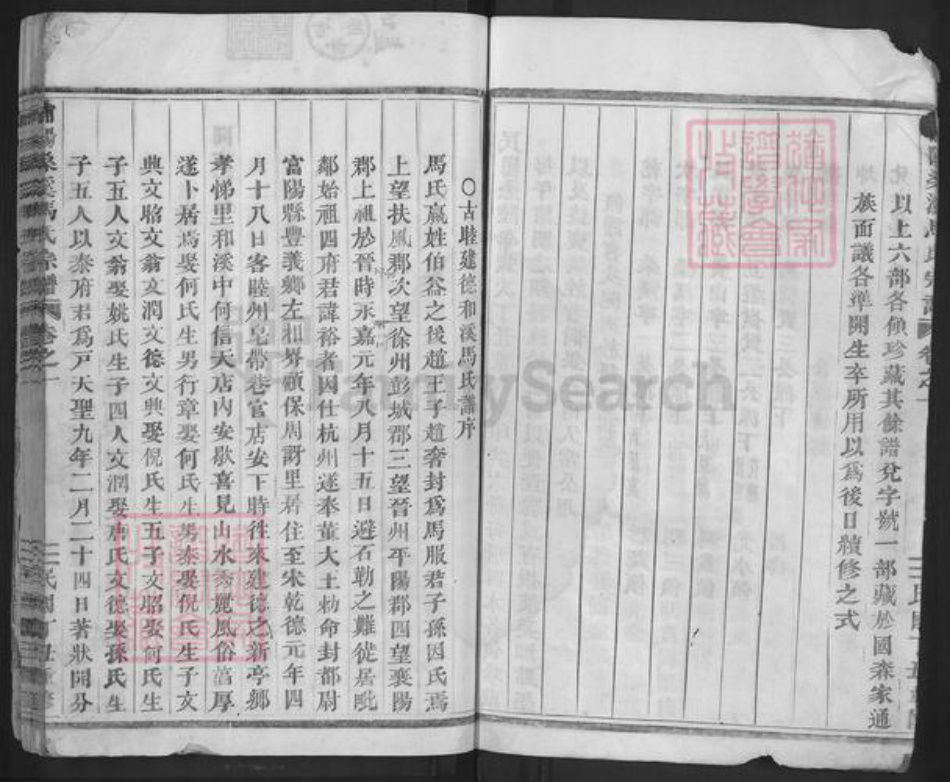 以上六部各傾珍藏其餘譜兌字號一部藏於國森家通
族面議各準開生卒所用以爲後日續修之式
○古睦建德和溪馬氏譜序
馬氏嬴姓伯益之後趙王子趙奢封爲馬服君子孫因氏焉
上望扶風郡次望徐州彭城郡三望晉州平陽郡四望襄陽
郡上祖於晉時永嘉元年八月十五日避石勒之難徙居毗
鄰始祖四府君諱裕者因仕杭州遂奉董大王勅命封都尉
富陽縣豐義鄉左相界顧保周訝里居住至宋乾德元年四
月十八日客睦州皂帶巷官店安下時徃來建德之新亭鄉
孝悌里和溪中何信天店內安歇喜見山水秀麗風俗湻厚
遂卜居焉娶何氏生男行章娶何氏生男泰娶倪氏生子文
典文昭文翁文潤文德文典娶倪氏生五子文昭娶何氏生
子五人文翁娶姚氏生子四人文潤娶唐氏文德娶孫氏生
子五人以泰府君爲戸天聖九年二月二十四日著狀開分
馬氏宗譜 卷之一
FamilySearch